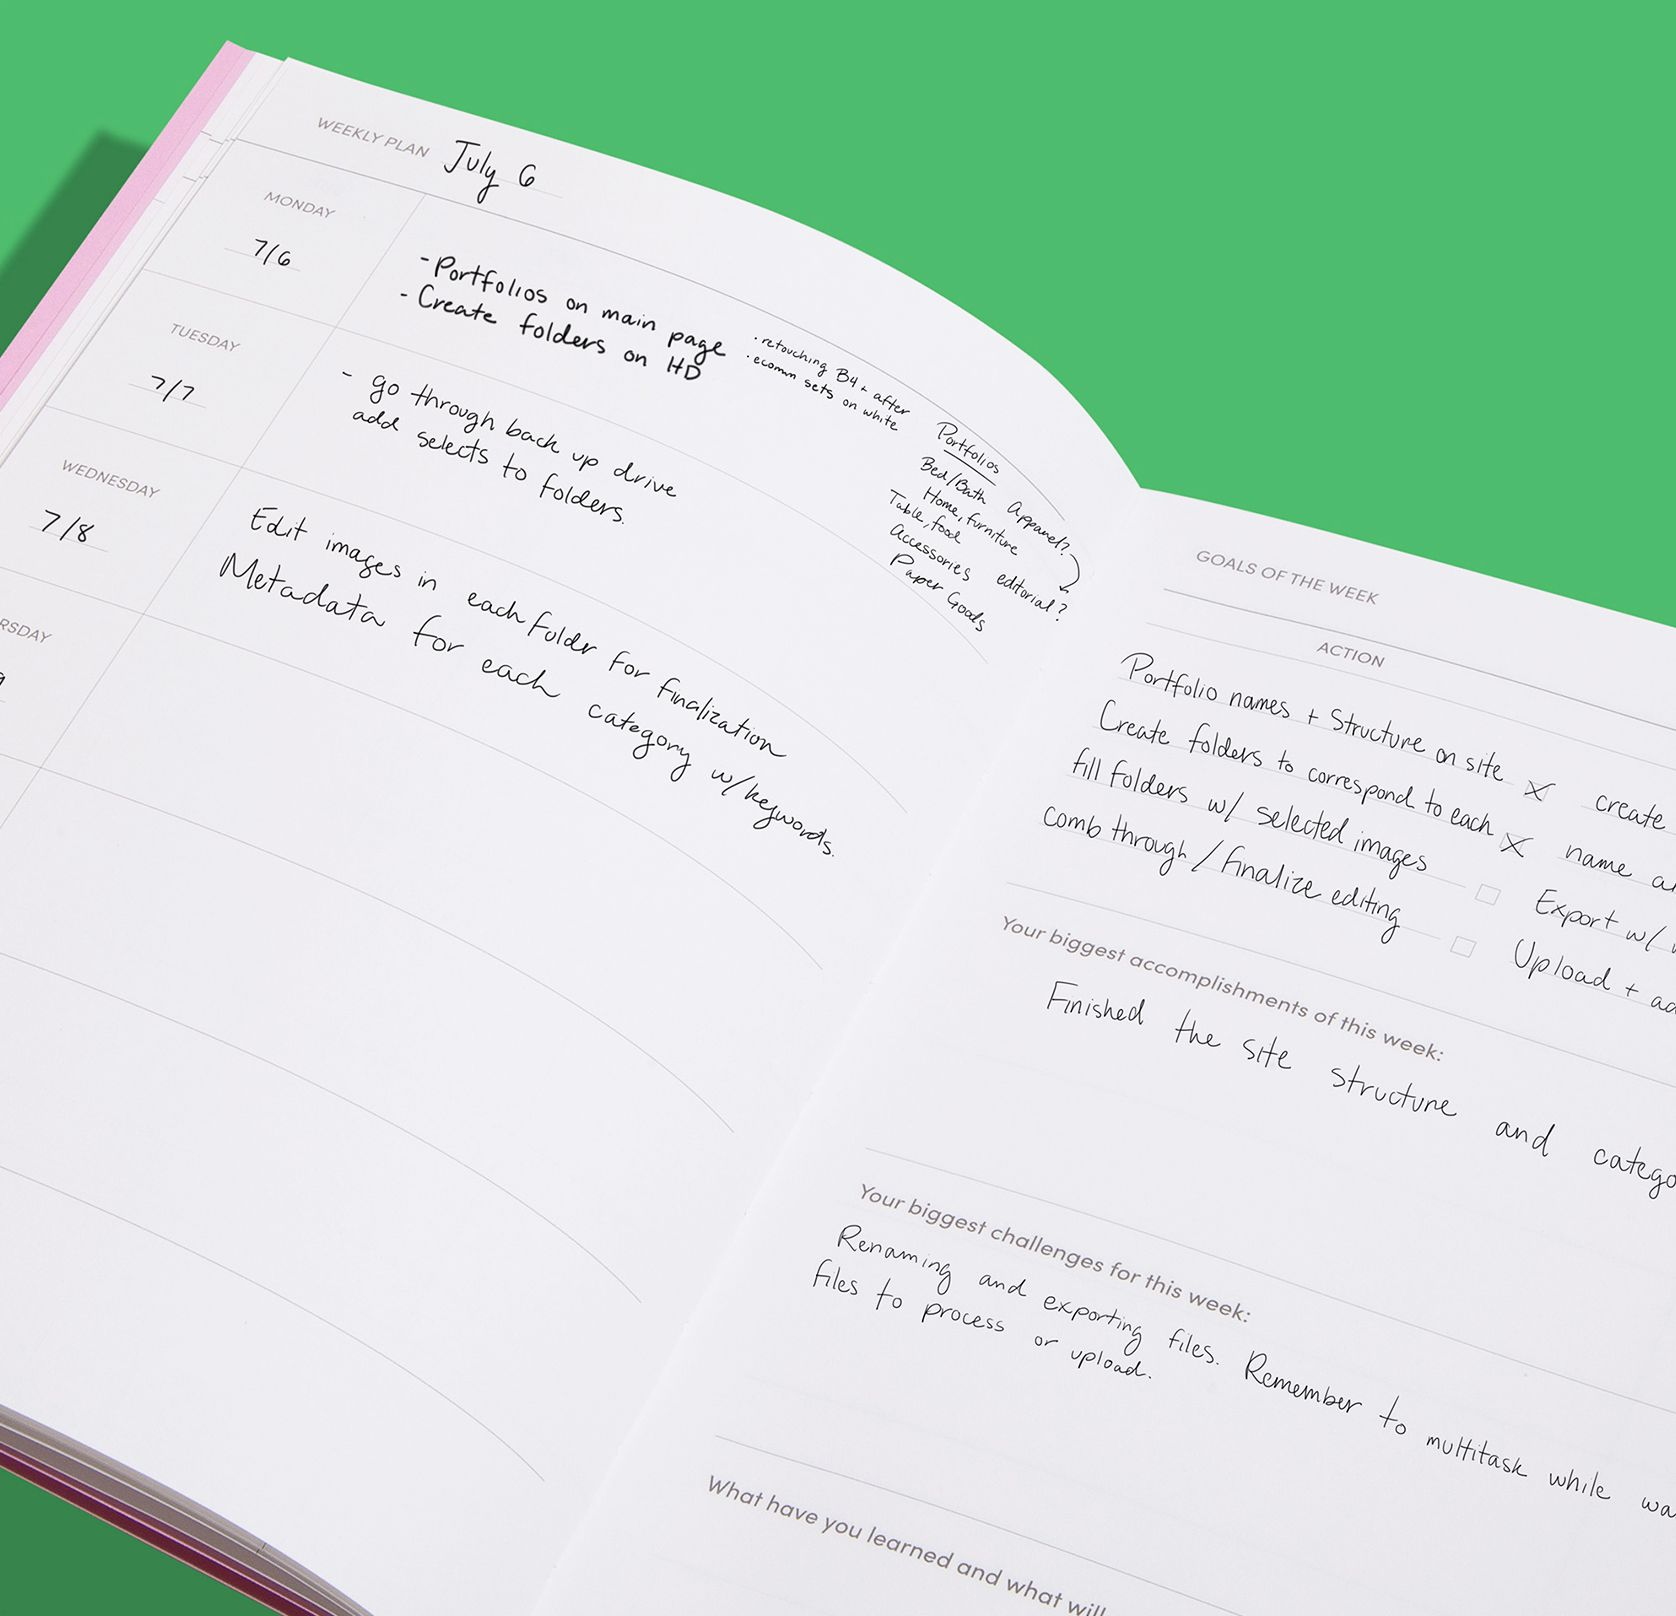 WEEKLY PLAN July 6
MONDAY
7/6
- Portfolios on main page
- Create folders on HD
· retouching B4 + after
· ecomm sets on white
TUESDAY
7/7
- go through back up drive
add selects to folders.
Portfolios
Bed/Bath Apparel?
Home, furniture
Table, food
Accessories editorial?
Paper Goods
WEDNESDAY
7/8
Edit images in each folder for finalization
Metadata for each category w/keywords.
RSDAY
9
GOALS OF THE WEEK
ACTION
Portfolio names + Structure on site create
Create folders to correspond to each name
fill folders w/ selected images Export w/
comb through / finalize editing Upload +
Your biggest accomplishments of this week:
Finished the site structure and catego
Your biggest challenges for this week:
Renaming and exporting files. Remember to multitask while wa
files to process or upload.
What have you learned and what will